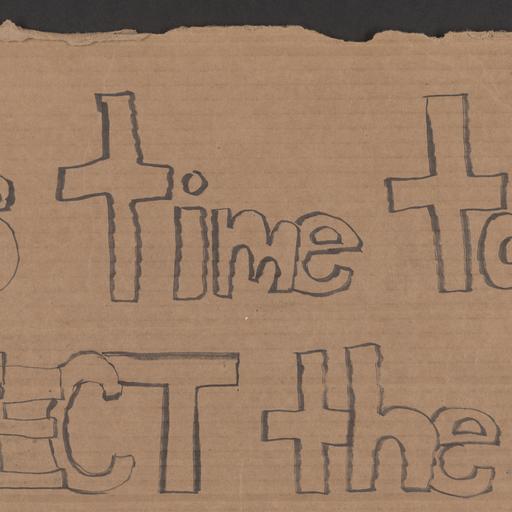 s time to
ECT the